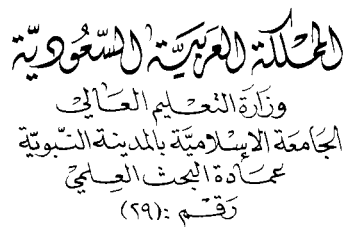 المملكة العربيّة السّعوديّة
وزارة التعليم العالي
الجامعة الإسلاميّة بالمدينة النّبويّة
عمادة البحث العلمي
رقم : (٢٩)